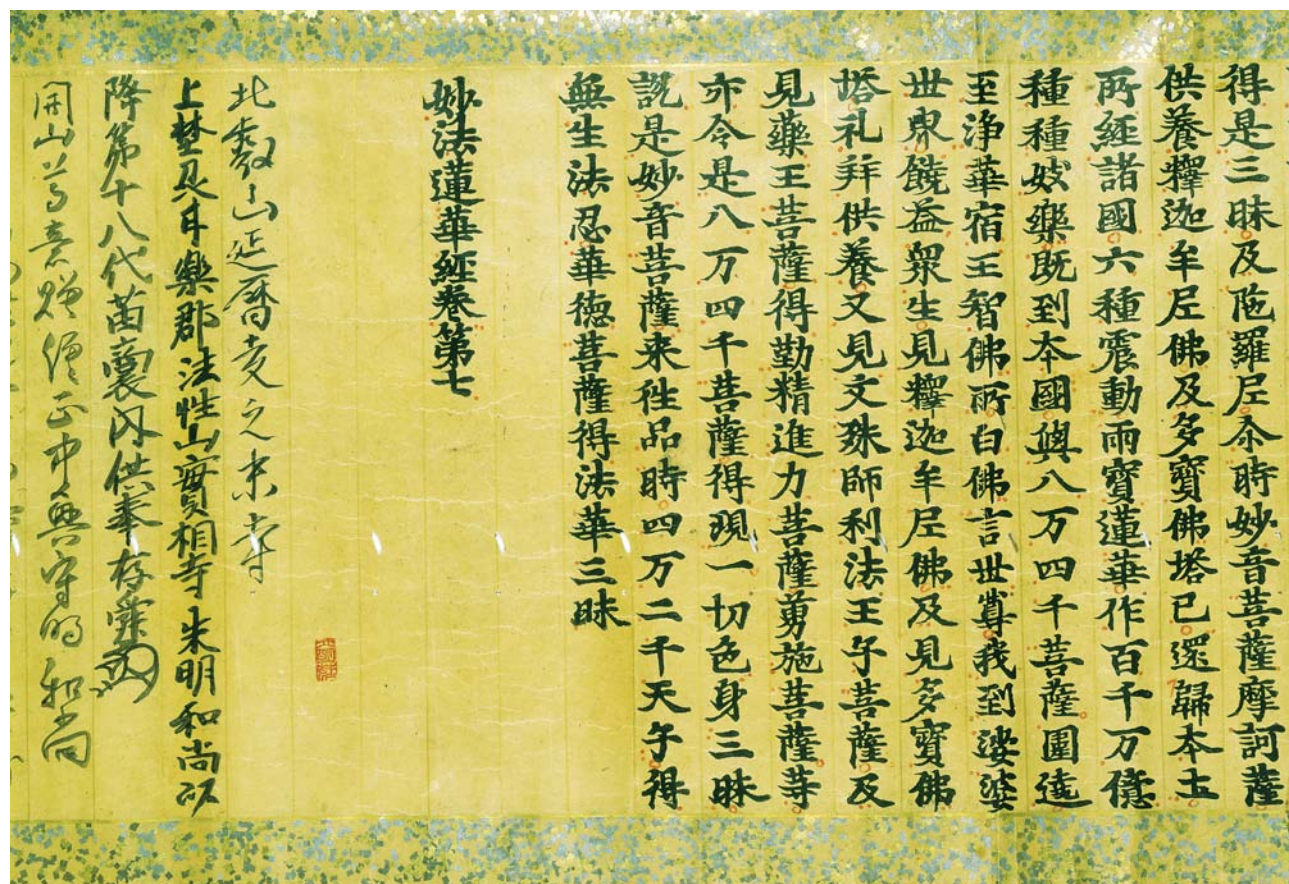 得是三昧及陁羅尼尒時妙音菩薩摩訶薩
供養釋迦牟尼佛及多寶佛塔已還歸本土
所經諸國六種震動雨寶蓮華作百千万億
種種妓樂既到本國與八万四千菩薩圍遶
至淨華宿王智佛所白佛言世尊我到娑婆
世界饒益衆生見釋迦牟尼佛及見多寶佛
塔礼拜供養又見文殊師利法王子菩薩及
見藥王菩薩得勤精進力菩薩勇施菩薩等
亦令是八万四千菩薩得現一切色身三昧
說是妙音菩薩来徃品時四万二千天子得
無生法忍華德菩薩得法華三昧
妙法蓮華經卷第七
北叡山延曆之末寺
上埜甘樂郡法性山實相寺朱明和尚以
降第十八代内供奉存舜
開山意贈僧正中興守和尚